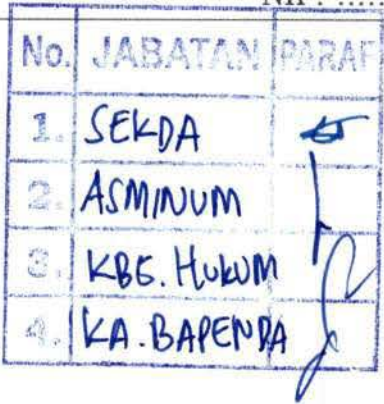 NIP. .....
No. JABATAN PARAF
1. SEKDA
2. ASMINUM
3. KBG. HUKUM
4. KA. BAPENDA